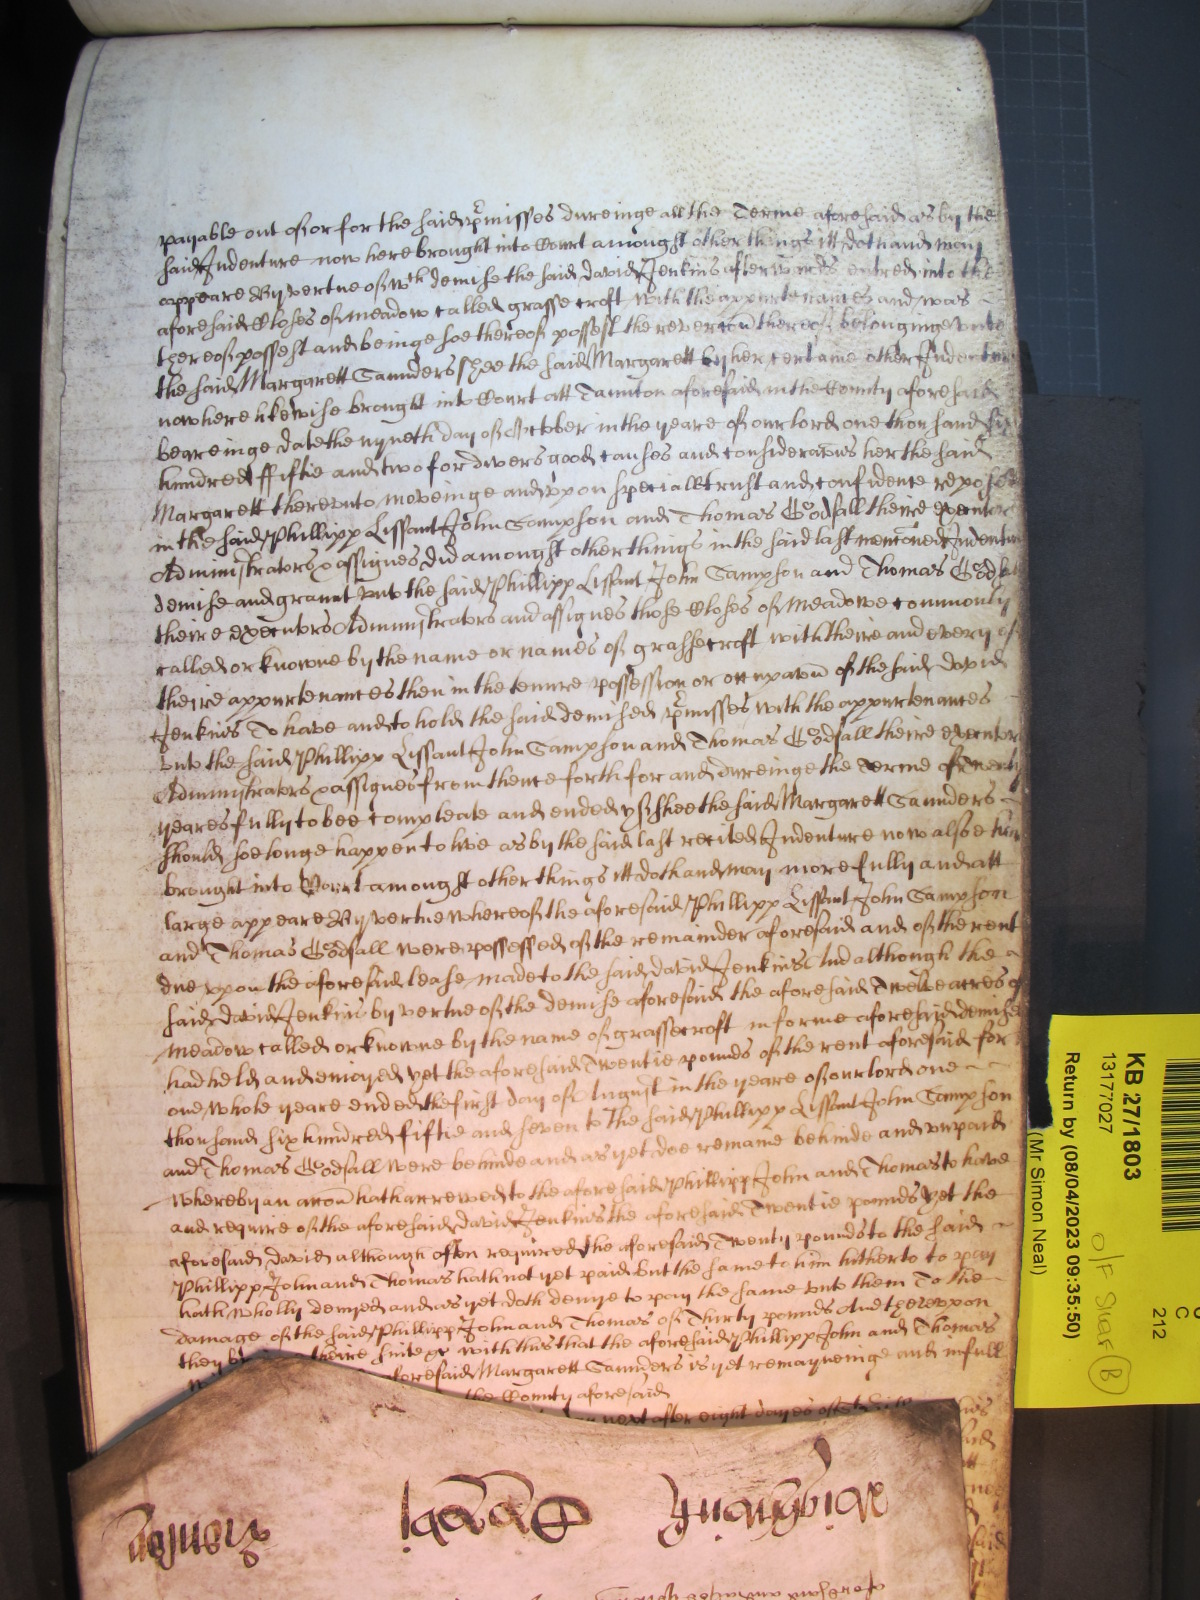 payable out of or for the said p̃misses dureinge all the Terme aforesaid as by the
said Indenture now here brought into Court amongst other things itt doth and may
appeare By vertue of wch demise the said david Jenkins afterwards entred into the
aforesaid Closes of meadow called grasse croft with the appurtenances and was
thereof possest and beinge soe thereof possest the revercõn thereof belonginge unto
the said Margarett Saunders shee the said Margarett by her certaine other Indenture
now here likewise brought into Court att Taunton aforesaid in the County aforesaid
beareinge date the nyneth day of October in the yeare of our lord one thousand six
hundred ffiftie and two for divers good causes and consideracõns her the said
Margarett thereunto moveinge and upon speciall trust and confidence reposed
in the said Phillipp Lissant John Sampson and Thomas Godsall theire executors
Administrators & assignes did amongst other things in the said last mencõned Indenture
demise and graunt unto the said Phillipp Lissant John Sampson and Thomas Godsall
theire executors Administrators and assignes those Closes of meadowe commonly
called or knowne by the name or names of grassecroft with theire and every of
theire appurtenances then in the tenure possession or occupacõn of the said david
Jenkins To have and to hold the said demised p̃misses with the appurtenances
unto the said Phillipp Lissant John Sampson and Thomas Godsall theire executors
Administrators & assignes from thence forth for and dureinge the terme of
yeares fully to bee compleate and ended yf shee the said Margarett Saunders
should soe longe happen to live as by the said last recited Indenture now alsoe here
brought into Court amongst other things itt doth and may more fully and att
large appeare By vertue whereof the aforesaid Phillipp Lissant John Sampson
and Thomas Godsall were possessed of the remainder aforesaid and of the rent
due upon the aforesaid lease made to the said david Jenkins And although the
said david Jenkins by vertue of the demise aforesaid the aforesaid Twelve acres of
meadow called or knowne by the name of grassecroft in forme aforesaid demised
had held and enioyed yet the aforesaid Twentie pounds of the rent aforesaid for
one whole yeare ended the first day of August in the yeare of our lord one
thousand six hundred fiftie and seven to the said Phillipp Lissant John Sampson
and Thomas Godsall were behinde and as yet doe remaine behinde and unpaid
whereby an accõn hath accrewed to the aforesaid Phillipp John and Thomas to have
and require of the aforesaid david Jenkins the aforesaid Twentie pounds yet the
aforesaid david although often required the aforesaid Twenty pounds to the said
Phillipp John and Thomas hath not yet paid but the same to him hitherto to pay
hath wholly denyed and as yet doth denye to pay the same unto them To the
damage of the said Phillipp John and Thomas of Thirty pounds And thereupon
they theire suite &c with this that the aforesaid Phillipp John and Thomas
aforesaid Margarett Saunders is yet remayneinge and in full
the County aforesaid
next after eight dayes of
KB 27/1803
13177027
Return by (08/04/2023 09:35:50)
(Mr Simon Neal)
212
C
O/F Shelf B